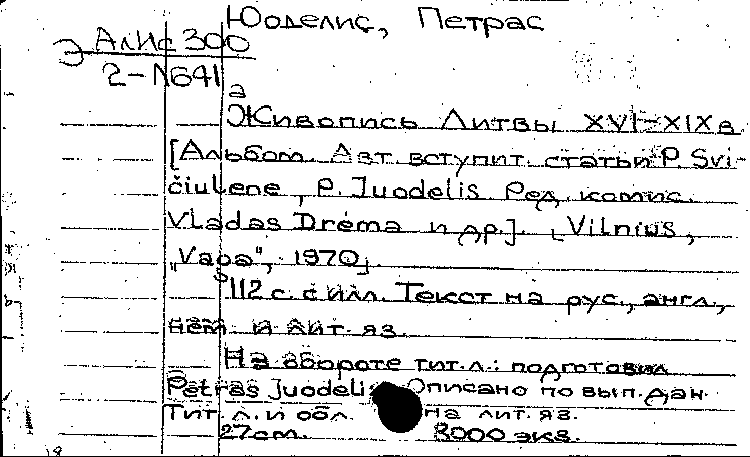 Юоделис, Петрас
Э Алис 300
2-N641
а
Живопись Литвы XVI-XIX в.
[Альбом. Авт. вступит. статьи P. Svi-
čiulene, P. Juodelis. Ред. комис.
Vladas Drėma и др.]. [Vilnius,
„Vaga", 1970].
112 с. с илл. Текст на рус., англ.,
нем. и лит. яз.
На обороте тит. л.: подготовил
Petras Juodelis. Описано по вып. дан.
Тит. л. и обл. на лит. яз.
27 cm. 8000 экз.